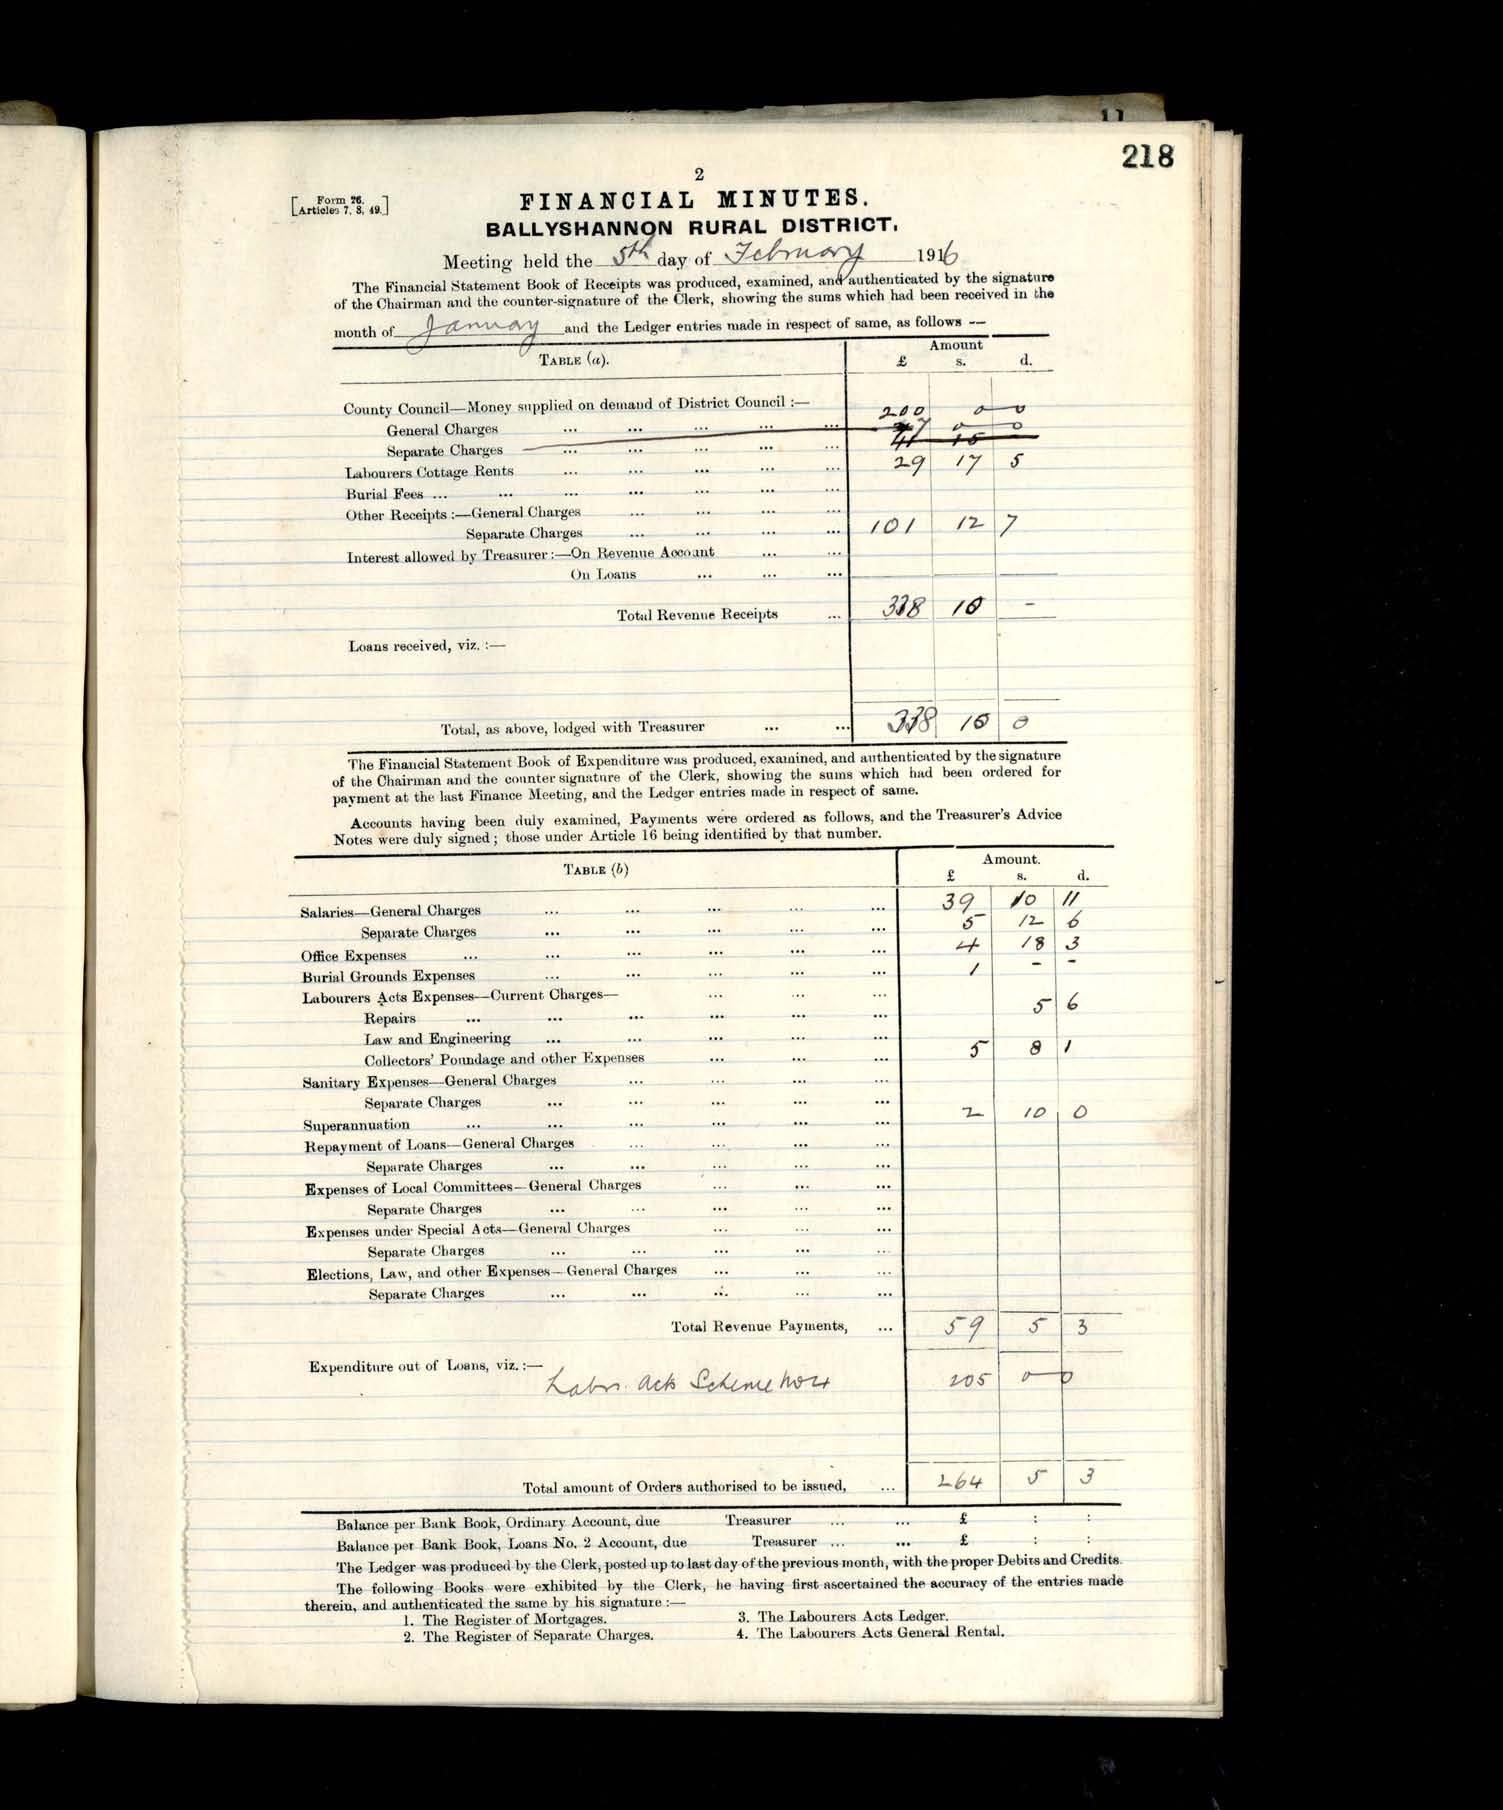 218
2
[Form 26. Articles 7, 8, 49.]
FINANCIAL MINUTES.
BALLYSHANNON RURAL DISTRICT.
Meeting held the 5th day of February 1916
The Financial Statement Book of Receipts was produced, examined, and authenticated by the signature
of the Chairman and the counter-signature of the Clerk, showing the sums which had been received in the
month of January and the Ledger entries made in respect of same, as follows —
TABLE (a). Amount
£ s. d.
County Council—Money supplied on demand of District Council :—
General Charges ... ... ... ... ... 200 0 0
7 0 0
Separate Charges ... ... ... ... 41 15
Labourers Cottage Rents ... ... ... ... ... 29 17 5
Burial Fees ... ... ... ... ... ... ...
Other Receipts :—General Charges ... ... ... ...
Separate Charges ... ... ... ... 101 12 7
Interest allowed by Treasurer :—On Revenue Account ... ...
On Loans ... ... ...
Total Revenue Receipts ... 338 10 -
Loans received, viz. :—
Total, as above, lodged with Treasurer ... ... 338 10 0
The Financial Statement Book of Expenditure was produced, examined, and authenticated by the signature
of the Chairman and the counter signature of the Clerk, showing the sums which had been ordered for
payment at the last Finance Meeting, and the Ledger entries made in respect of same.
Accounts having been duly examined, Payments were ordered as follows, and the Treasurer's Advice
Notes were duly signed ; those under Article 16 being identified by that number.
TABLE (b) Amount.
£ s. d.
Salaries—General Charges ... ... ... ... ... 39 10 11
Separate Charges ... ... ... ... ... 5 12 6
Office Expenses ... ... ... ... ... ... 4 18 3
Burial Grounds Expenses ... ... ... ... ... 1 - -
Labourers Acts Expenses—Current Charges— ... ... ...
Repairs ... ... ... ... ... ... 5 6
Law and Engineering ... ... ... ... ...
Collectors' Poundage and other Expenses ... ... ... 5 8 1
Sanitary Expenses—General Charges ... ... ... ...
Separate Charges ... ... ... ... ...
Superannuation ... ... ... ... ... ... 2 10 0
Repayment of Loans—General Charges ... ... ... ...
Separate Charges ... ... ... ... ...
Expenses of Local Committees—General Charges ... ... ...
Separate Charges ... ... ... ... ...
Expenses under Special Acts—General Charges ... ... ...
Separate Charges ... ... ... ... ...
Elections, Law, and other Expenses—General Charges ... ... ...
Separate Charges ... ... ... ... ...
Total Revenue Payments, ... 59 5 3
Expenditure out of Loans, viz. :—
Labrs. Acts Scheme No 4 205 0 0
Total amount of Orders authorised to be issued, ... 264 5 3
Balance per Bank Book, Ordinary Account, due Treasurer ... ... £ : :
Balance per Bank Book, Loans No. 2 Account, due Treasurer ... ... £ : :
The Ledger was produced by the Clerk, posted up to last day of the previous month, with the proper Debits and Credits.
The following Books were exhibited by the Clerk, he having first ascertained the accuracy of the entries made
therein, and authenticated the same by his signature :—
1. The Register of Mortgages. 3. The Labourers Acts Ledger.
2. The Register of Separate Charges. 4. The Labourers Acts General Rental.